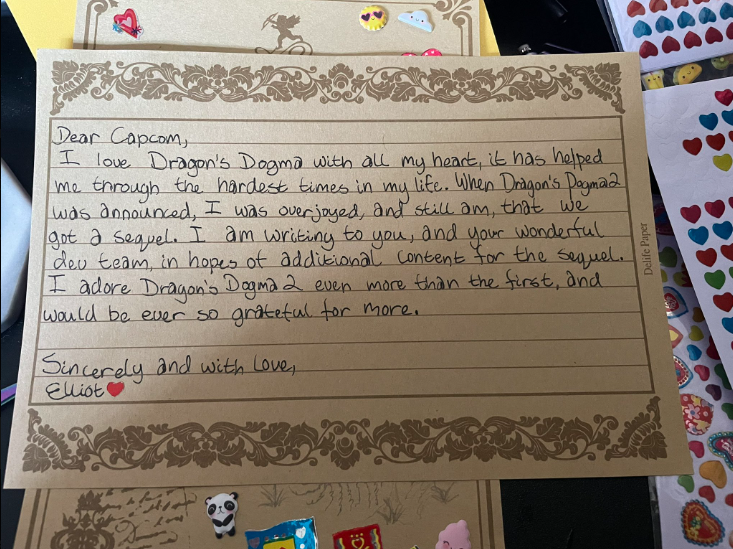 Dear Capcom,
I love Dragon's Dogma with all my heart, it has helped
me through the hardest times in my life. When Dragon's Dogma 2
was announced, I was overjoyed, and still am, that we
got a sequel. I am writing to you, and your wonderful
dev team, in hopes of additional content for the sequel.
I adore Dragon's Dogma 2 even more than the first, and
would be ever so grateful for more.
Sincerely and with Love,
Elliot
Delife Paper